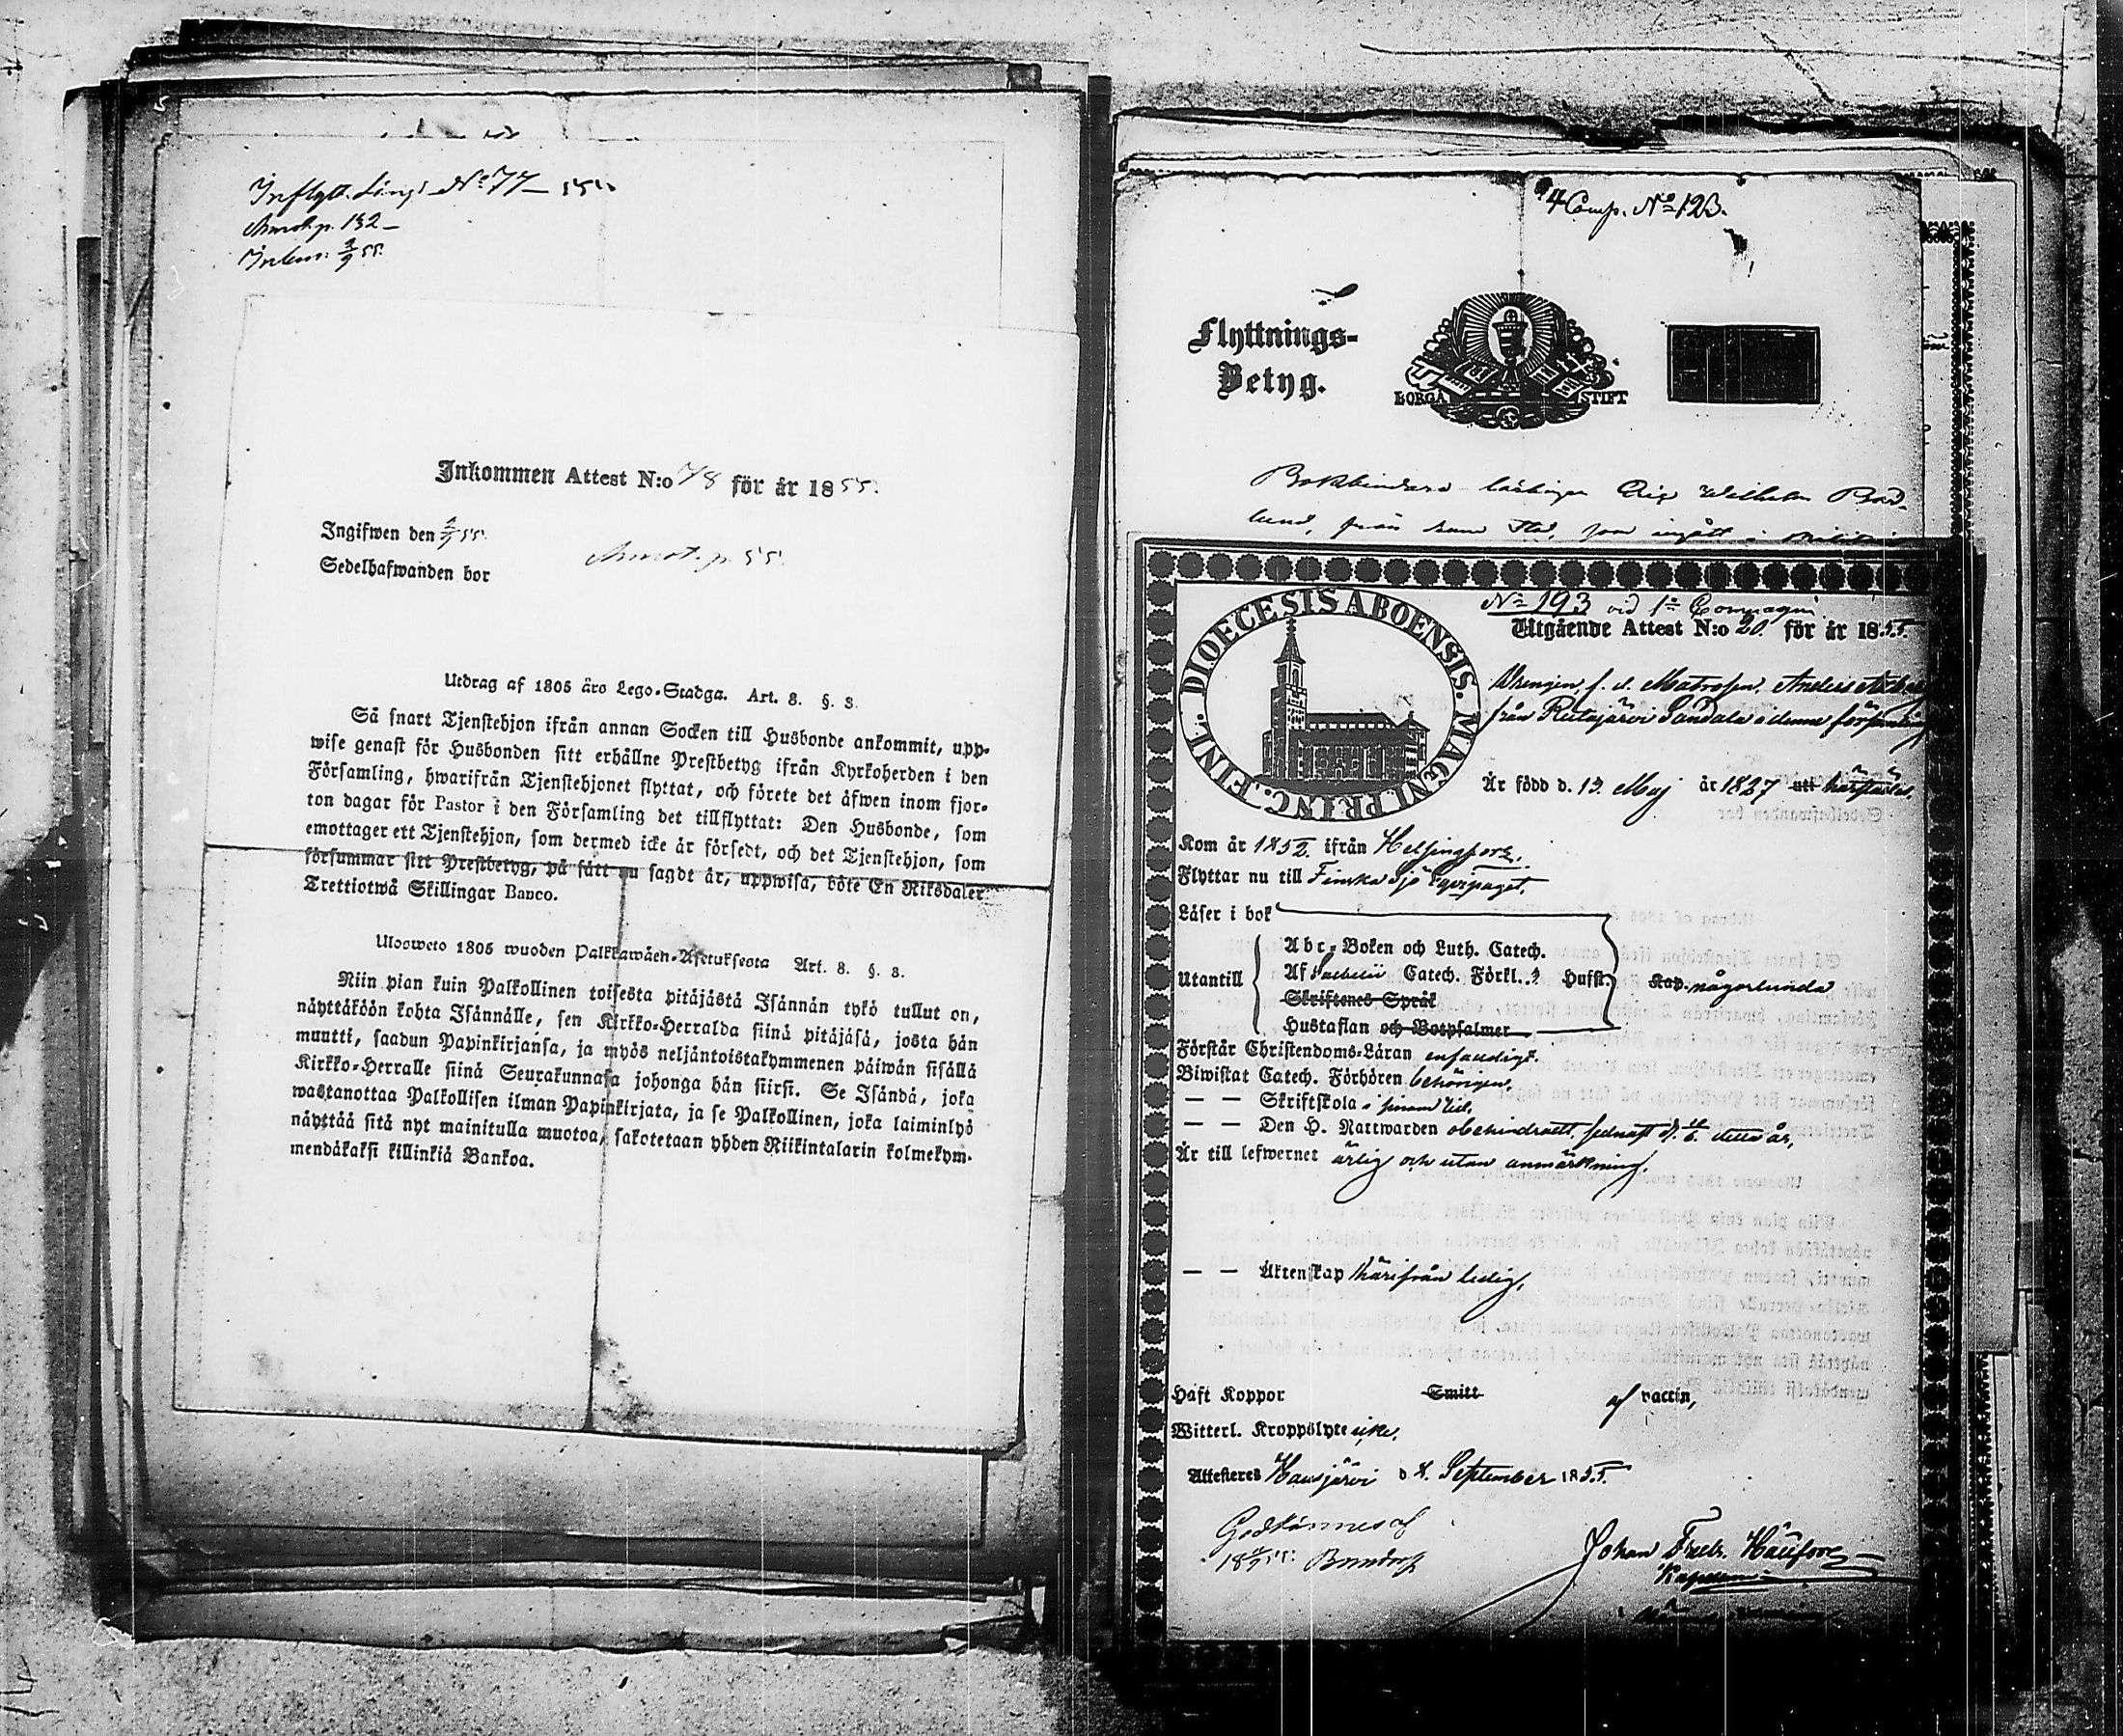 Inflytt. Läng. No 77 – 55.
p. 132 –
Inkom: 2/9 55.
Inkommen Attest N:o 78 för år 1855.
Ingifwen den 2/9 55.
p. 55.
Sedelhafwanden bor
Utdrag af 1805 års Lego-Stadga. Art. 8. §. 3.
Så snart Tjenstehjon ifrån annan Socken till Husbonde ankommit, upp-
wise genast för Husbonden sitt erhållne Prestbetyg ifrån Kyrkoherden i den
Församling, hwarifrån Tjenstehjonet flyttat, och förete det äfwen inom fjor-
ton dagar för Pastor i den Församling det tillflyttat: Den Husbonde, som
emottager ett Tjenstehjon, som dermed icke är försedt, och det Tjenstehjon, som
försummar sitt Prestbetyg, på sätt nu sagdt är, uppwisa, böte En Riksdaler
Trettiotwå Skillingar Banco.
Ulosweto 1805 wuoden Palkkawäen-Asetuksesta Art. 8. §. 3.
Niin pian kuin Palkollinen toisesta pitäjästä Isännän tykö tullut on,
näyttäköön kohta Isännälle, sen Kirkko-Herralda siinä pitäjäsä, josta hän
muutti, saadun Papinkirjansa, ja myös neljäntoistakymmenen päiwän sisällä
Kirkko-Herralle siinä Seurakunnasa johonga hän siirsi. Se Isändä, joka
wastanottaa Palkollisen ilman Papinkirjata, ja se Palkollinen, joka laiminlyö
näyttää sitä nyt mainitulla muotoa, sakotetaan yhden Riikintalarin kolmekym-
mendäkaksi killinkiä Bankoa.
4 Comp. No 123.
Flyttnings-
Betyg.
BORGÅ STIFT
Bokbindare lärlingen Wilhelm
lund, från
DIOECESIS ABOENSIS. MAGNI. PRINC. FINL.
No 193 vid 1a Compagni
Utgående Attest N:o 20 för år 1855.
Drengen, f. d. Matrosen, Anders
från Rutajärvi Sandala i denna församling
Är född d. 13 Maj år 1827 utt härstädes.
Kom år 1852. ifrån Helsingfors.
Flyttar nu till Finska Sjö Equipaget.
Läser i bok
Abc-Boken och Luth. Catech.
Utantill Af Catech. Förkl. Husst. Kap. någorlunda
Skriftenes Språk
Hustaflan och Botpsalmer
Förstår Christendoms-Läran enfaldigt.
Biwistat Catech. Förhören behörigen.
— — Skriftskola i sinom tid.
— — Den H. Nattwarden obehindradt, sednast d. detta år,
Är till lefwernet ärlig och utan anmärkning.
— — Äktenskap härifrån ledig.
Haft Koppor Smitt af vaccin,
Witterl. Kroppslyte icke.
Attesteres Hausjärvi d. 4. September 1855.
Godkännes af
18 55.
Johan Fredr.
Kapellan